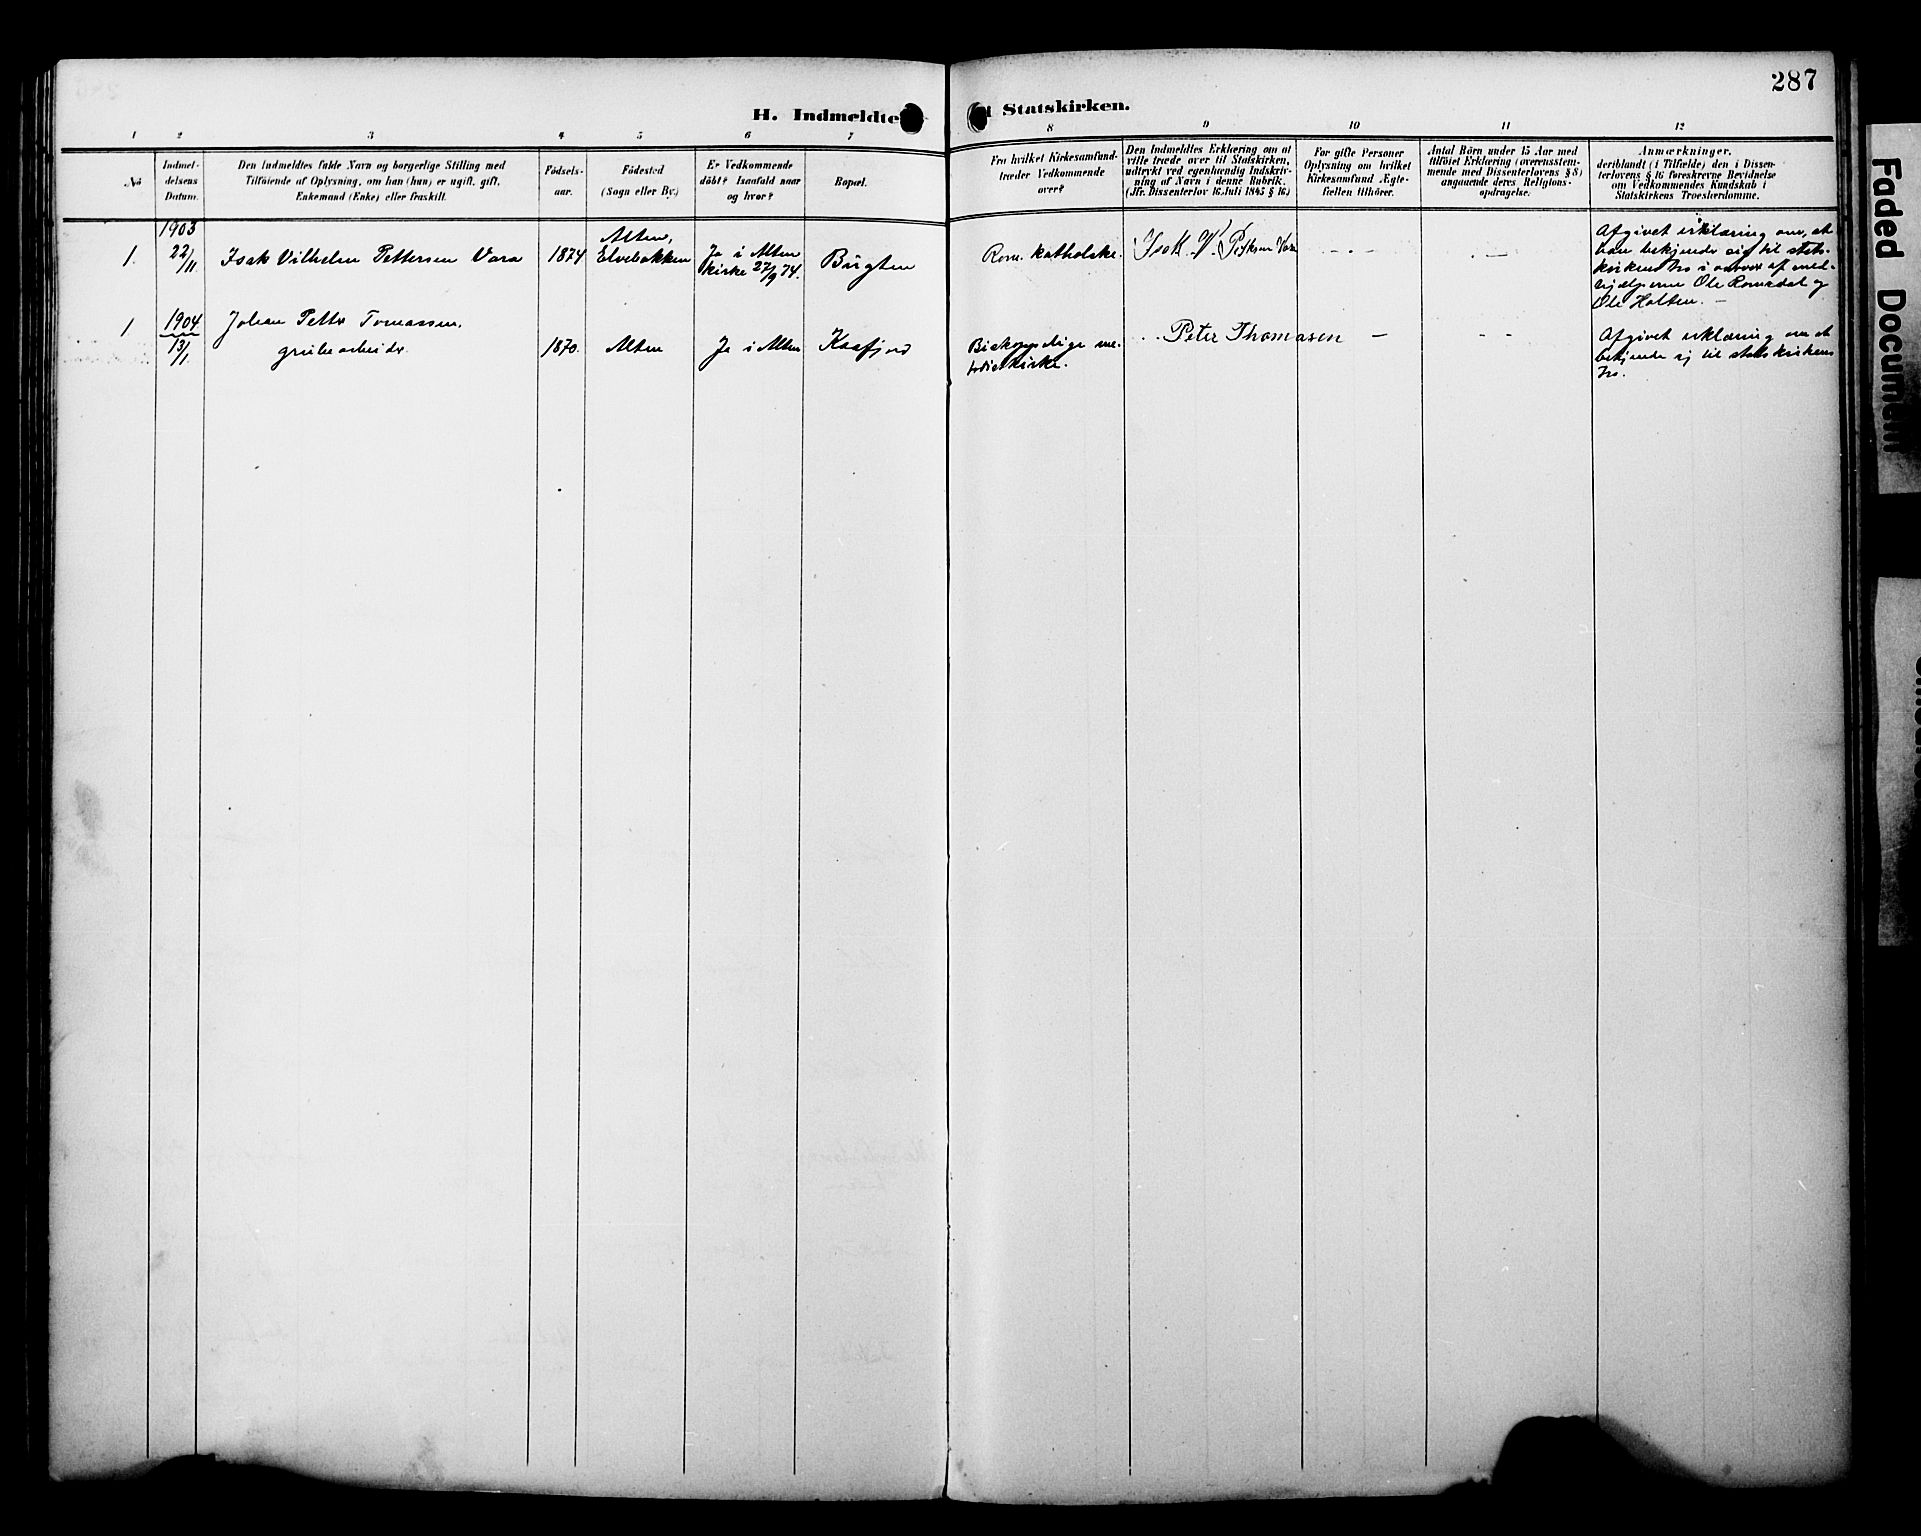 287
H. Indmeldte i Statskirken.
1 2 3 4 5 6 7 8 9 10 11 12
No
Indmel-
delsens
Datum.
Den Indmeldtes fulde Navn og borgerlige Stilling med
Tilföiende af Oplysning, om han (hun) er ugift, gift,
Enkemand (Enke) eller fraskilt.
Födsels-
aar.
Födested
(Sogn eller By.)
Er Vedkommende
döbt? Isaafald naar
og hvor?
Bopæl.
Fra hvilket Kirkesamfund
træder Vedkommende
over?
Den Indmeldtes Erklæring om at
ville træde over til Statskirken,
udtrykt ved egenhændig Indskriv-
ning af Navn i denne Rubrik.
(Jfr. Dissenterlov 16. Juli 1845 § 16)
For gifte Personer
Oplysning om hvilket
Kirkesamfund Ægte-
fællen tilhörer.
Antal Börn under 15 Aar med
tilföiet Erklæring (overensstem-
mende med Dissenterlovens § 8)
angaaende deres Religions-
opdragelse.
Anmærkninger,
deriblandt (i Tilfælde) den i Dissen-
terlovens § 16 foreskrevne Bevidnelse
om Vedkommendes Kundskab i
Statskirkens Troeslærdomme.
1903
1. 22/11 Isak Vilhelm Pettersen Vara 1874
Alten,
Elvebakken
Ja i Alten
kirke 27/9 74.
Bugten
Rom. katholske.
Isak V. Pettersen Vara
- - -
- —
Afgivet erklæring om, at
han bekjender sig til stats-
kirkens tro i nærvær af med-
hjælperne Ole Romsdal og
Ole Holten. —
1 1904
13/1.
Johan Petter Tomassen,
grubearbeider
1870.
Alten
Ja i Alten
Kaafjord
Biskoppelige me-
todistkirke.
Peter Thomasen
—
- -
Afgivet erklæring om at
bekjende sig til statskirkens
tro.
Faded Document